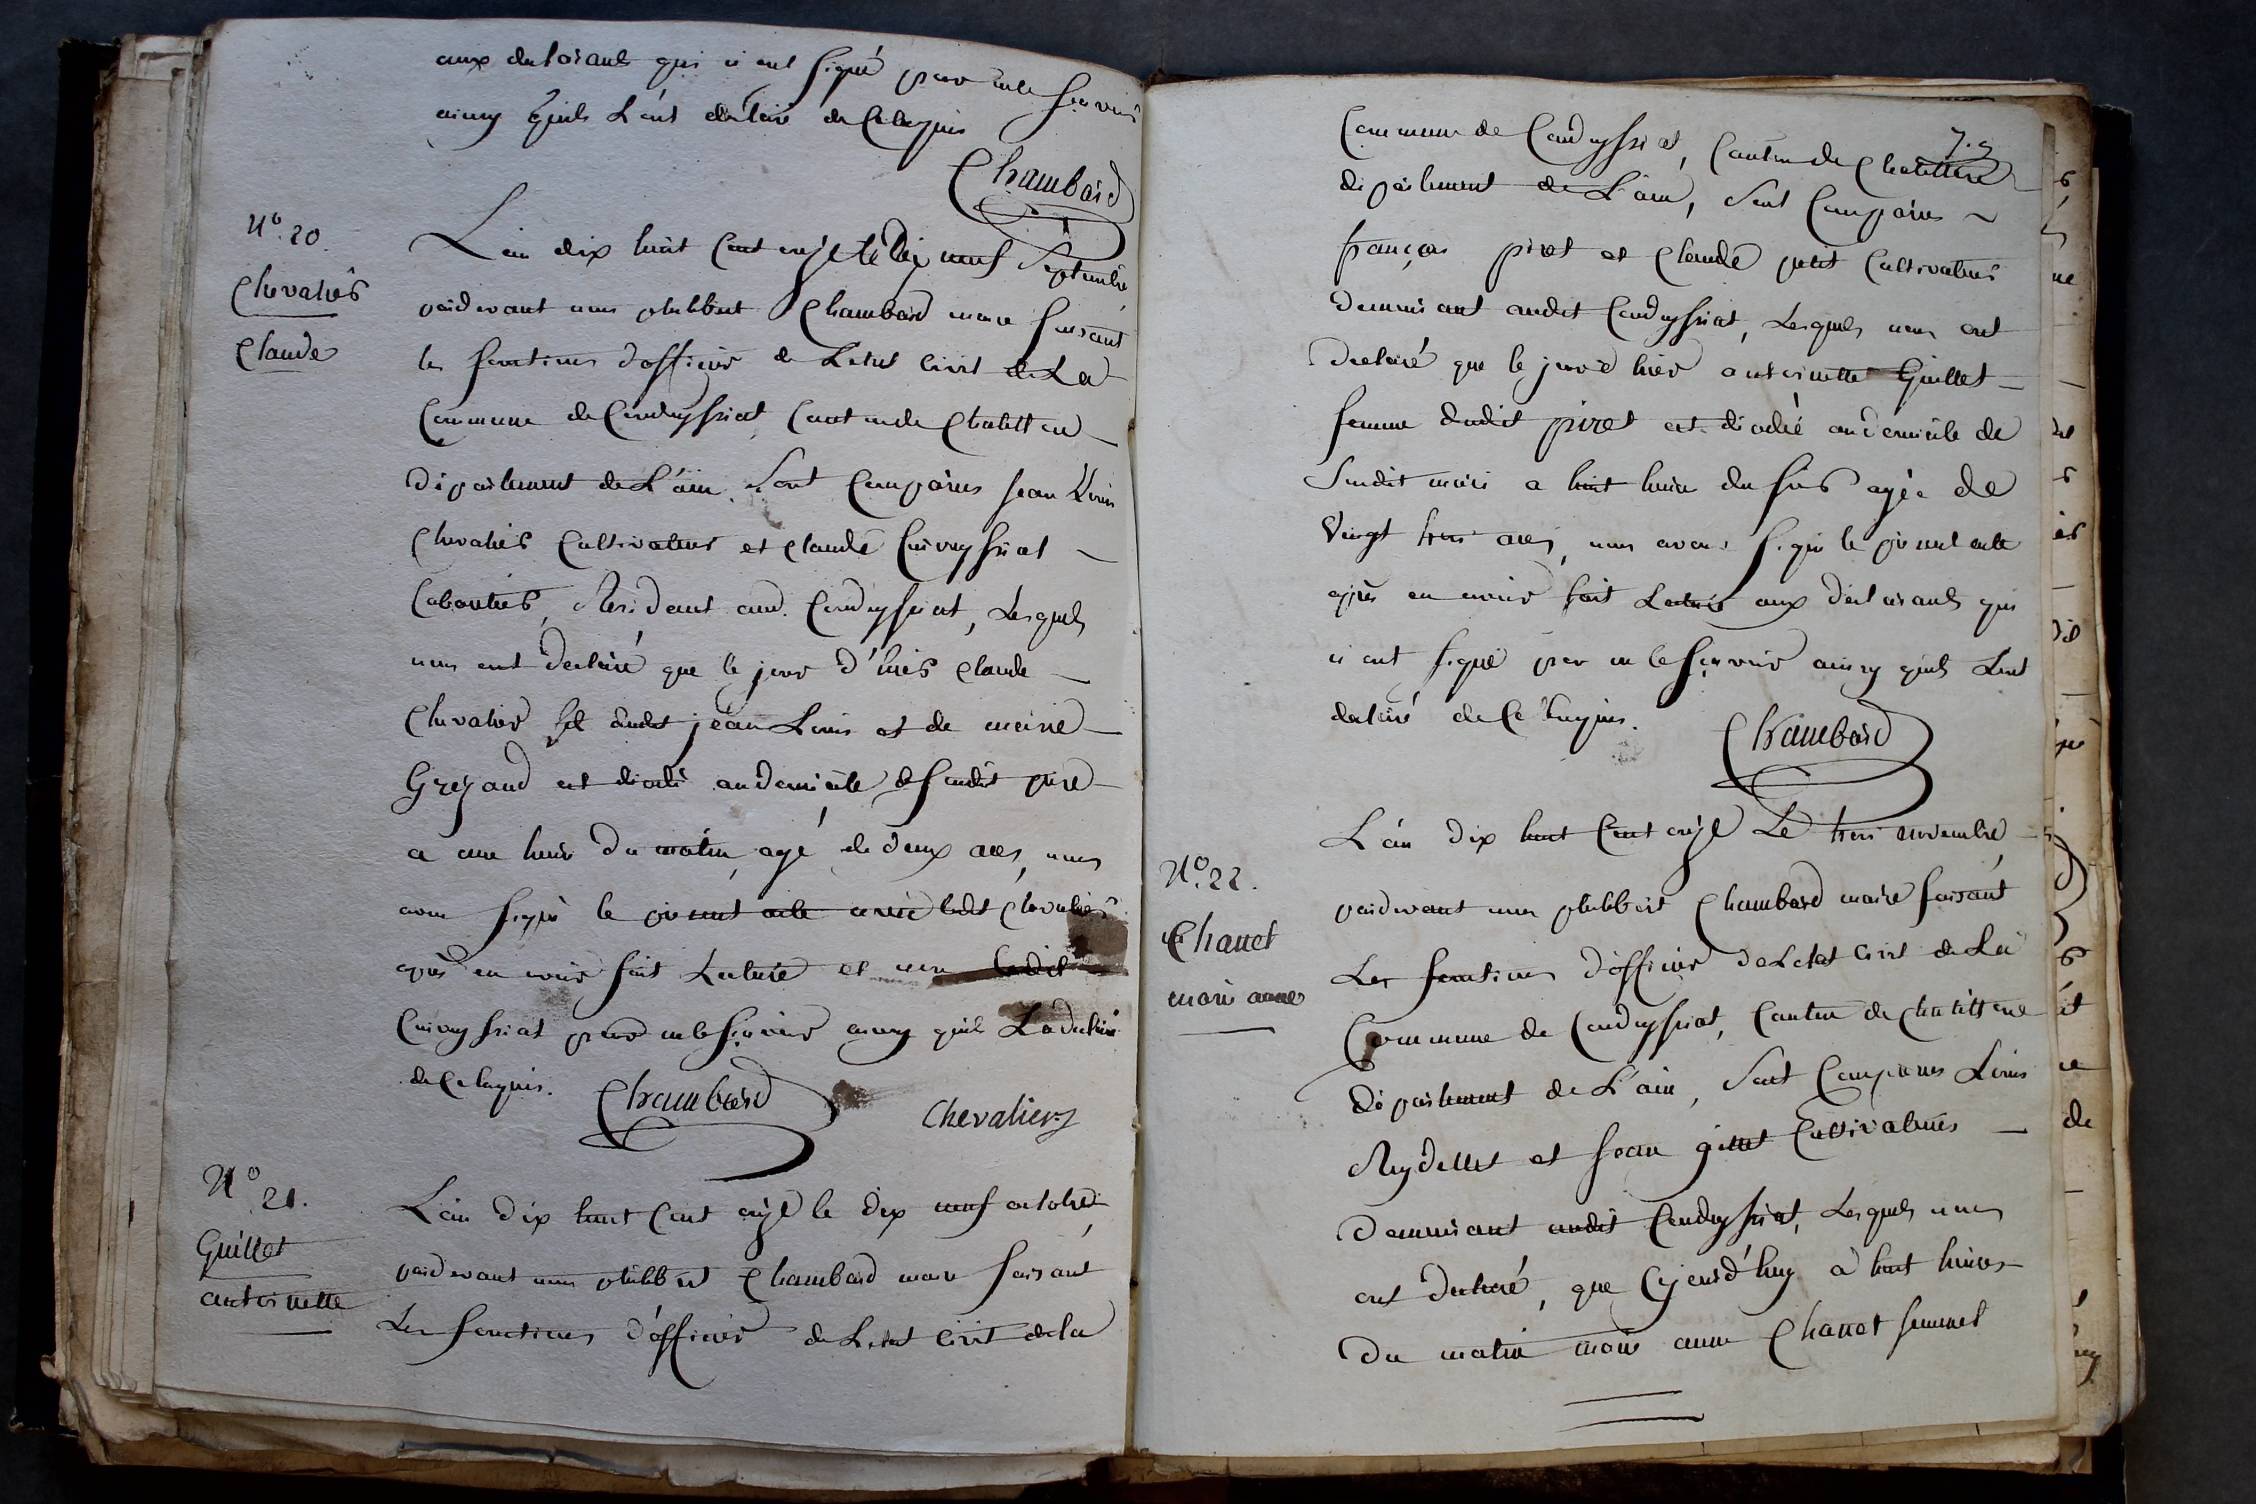 aux declarants qui n'ont signé pour ne le sçavoir
ainsy quils L'ont declaré de Ce Requis
Chambard
N.º 20.
Chevalier
Claude
L'an dix huit Cent onze le dix neuf Septembre
pardevant nous philibert Chambard maire faisant
les fonctions d'officier de L'etat Civil de La
Commune de Condeyssiat, Canton de Chatillon
departement de L'ain. Sont Comparus jean Louis
Chevalier Cultivateur et Claude Cuivyssiat
Cabaretier, Residant aud. Condeyssiat, Lesquels
nous ont declaré que le jour d'hier Claude
Chevalier fil dudit jean Louis et de marie
est décédé au domicile de sondit père
a une heure du matin, agé de deux ans, nous
avons signé le present acte avec ledit Chevalier
après en avoir fait Lecture et non ledit
Cuivyssiat pour ne le sçavoir ainsy quil L'a declaré
de Ce Requis. Chambard
Chevalier
N.º 21.
Guillet
antoinette
L'an dix huit Cent onze le dix neuf octobre
pardevant nous philibert Chambard maire faisant
Les fonctions d'officier de L'etat Civil de la
Commune de Condeyssiat, Canton de Chatillon
departement de L'ain, Sont Comparus
françois piret et Claude petit Cultivateurs
demeurant audit Condeyssiat, Lesquels nous ont
declaré que le jour d'hier antoinette Guillet
femme dudit piret est décédée au domicile de
Sondit mari a huit heure du soir agée de
Vingt trois ans, nous avons signé le present acte
après en avoir fait Lecture aux declarants qui
n'ont signé pour ne le sçavoir ainsy quils L'ont
declaré de Ce Requis.
Chambard
N.º 22.
Chanet
marie anne
L'an dix huit Cent onze Le trois novembre
pardevant nous philibert Chambard maire faisant
Les fonctions d'officier de L'etat Civil de La
Commune de Condeyssiat, Canton de Chatillon
departement de L'ain, Sont Comparus Louis
Reydellet et jean Cultivateurs
demeurant audit Condeyssiat, Lesquels nous
ont declaré, que Cejourd'huy à huit heures
du matin marie anne Chanet femme